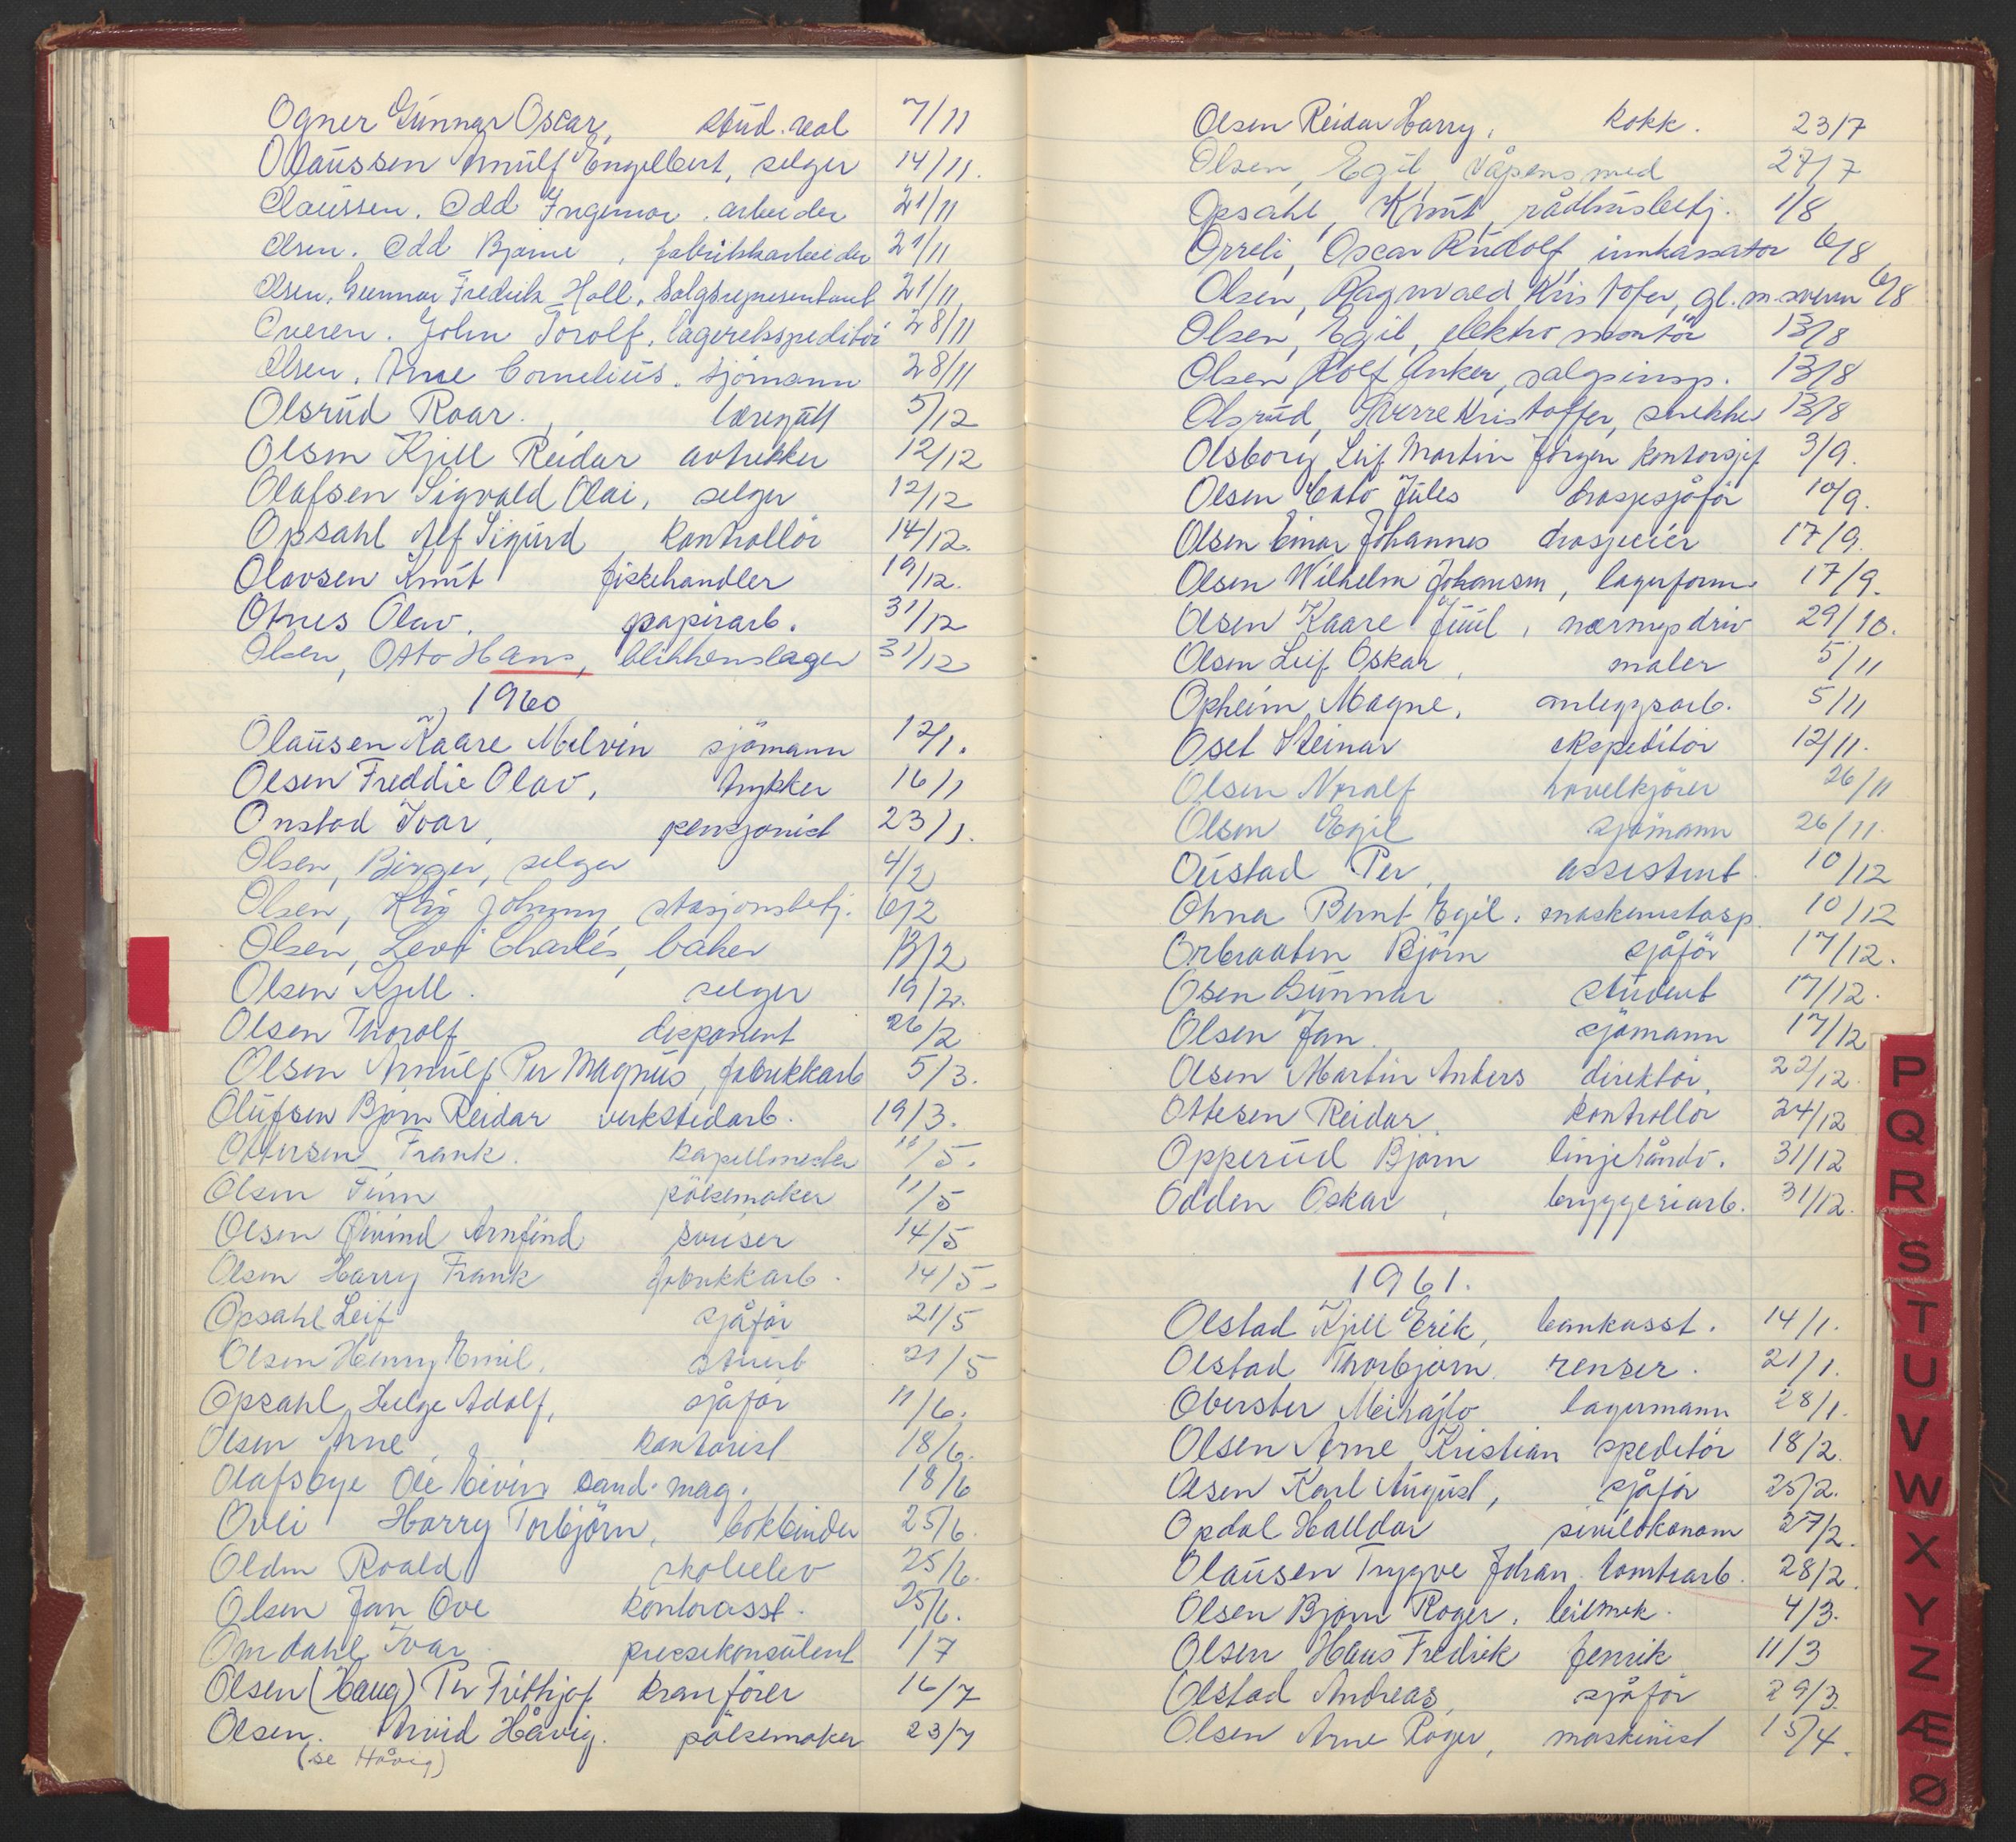 Ogner Gunnar Oscar, stud. real 7/11
Olaussen Arnulf Engelbert, selger 14/11.
Olaussen. Odd Ingemar. arbeider 21/11
Olsen. Odd Bjarne, fabrikkarbeider 21/11
Olsen. Gunnar Fredrik Holl, Salgsrepresentant 21/11
Overen. John Torolf. lagerekspeditør 28/11
Olsen. Arne Cornelius. sjömann 28/11
Olsrud Roar. 5/12
Olsen Kjell Reidar avtrekker 12/12
Olafsen Sigvald Olai, selger 12/12
Opsahl Alf Sigurd kontrollör 14/12.
Olavsen Knut fiskehandler 19/12.
Otnes Olav. papirarb. 31/12
Olsen, Otto Hans, blikkenslager 31/12
1960
Olausen Kaare Melvin sjömann 12/1.
Olsen Freddie Olav, trykker 16/1
Onstad Ivar, pensjonist 23/1.
Olsen, Birger, selger 4/2
Olsen, Kåg Johnny stasjonsbetj. 6/2
Olsen, Levi Charles, baker 13/2
Olsen Kjell. selger 19/2.
Olsen Thorolf disponent 26/2
Olsen Arnulf Per Magnus, fabrikkarb 5/3.
Olufsen Bjørn Reidar verkstedarb. 19/3.
Ottersen Frank. kapellmester 11/5.
Olsen Finn pölsemaker 11/5
Olsen Øivind Arnfind sveiser 14/5
Olsen Harry Frank fabrikkarb. 14/5.
Opsahl Leif sjåför 21/5
Olsen Henry Emil, stuert 21/5
Opsahl Helge Adolf, sjåför 11/6.
Olsen Arne, kontorist 18/6.
Olafsbye Ole Eivin cand. mag. 18/6
Ovli Harry Torbjörn, bokbinder 25/6.
Olden Roald skoleelev 25/6.
Olsen Jan Ove kontorasst. 25/6.
Omdahl Ivar pressekonsulent 1/7
Olsen (Haug) Per Frithjof kranförer 16/7
Olsen. Arvid Håvig. pölsemaker 23/7
(se Håvig)
Olsen Reidar Harry, kokk. 23/7
Olsen, Egil, Våpensmed 27/7
Opsahl, Knut, rådhusbetj. 1/8
Orreli, Oscar Rudolf innkassator 6/8
Olsen, Ragnvald Kristofer, gl.m.svenn 6/8
Olsen, Egil, elektromontör 13/8
Olsen, Rolf Anker, salgsinsp. 13/8
Olsrud, Sverre Kristoffer, snekker 13/8
Olsborg Leif Martin Jörgen kontorsjef 3/9.
Olsen Cato Jules drosjesjåför 10/9.
Olsen Einar Johannes drosjeeier 17/9.
Olsen Wilhelm Johansen, lagerform. 17/9.
Olsen Kaare Juul, næringsdriv 29/10.
Olsen Leif Oskar, maler 5/11
Opheim Magne, anleggsarb. 5/11
Oset Steinar ekspeditör 12/11.
Olsen Noralf hövelkjörer 26/11
Olsen Egil sjömann 26/11.
Oustad Per, assistent 10/12
Ohna Bernt Egil. maskinistasp. 10/12
Orbraaten Björn sjåför 17/12.
Osen Gunnar student 17/12.
Olsen Jan. sjömann 17/12
Olsen Martin Anders direktör. 22/12.
Ottesen Reidar. kontrollör 24/12
Opperud Bjørn linjehåndv. 31/12
Odden Oskar, bryggeriarb. 31/12.
1961.
Olstad Kjell Erik, bankasst. 14/1.
Olstad Thorbjörn renser. 21/1.
Oberster Meihajlo lagermann 28/1.
Olsen Arne Kristian speditör 18/2.
Olsen Karl August, sjåför 25/2.
Opdal Halldor siviløkonom 27/2.
Olausen Trygve Johan. tomtearb. 28/2.
Olsen Bjørn Roger, bilmek. 4/3.
Olsen Hans Fredrik fenrik 11/3
Olstad Andreas, sjåför 29/3.
Olsen Arne Roger, maskinist 15/4.
P
Q
R
S
T
U
V
W
X
Y
Z
Æ
Ø